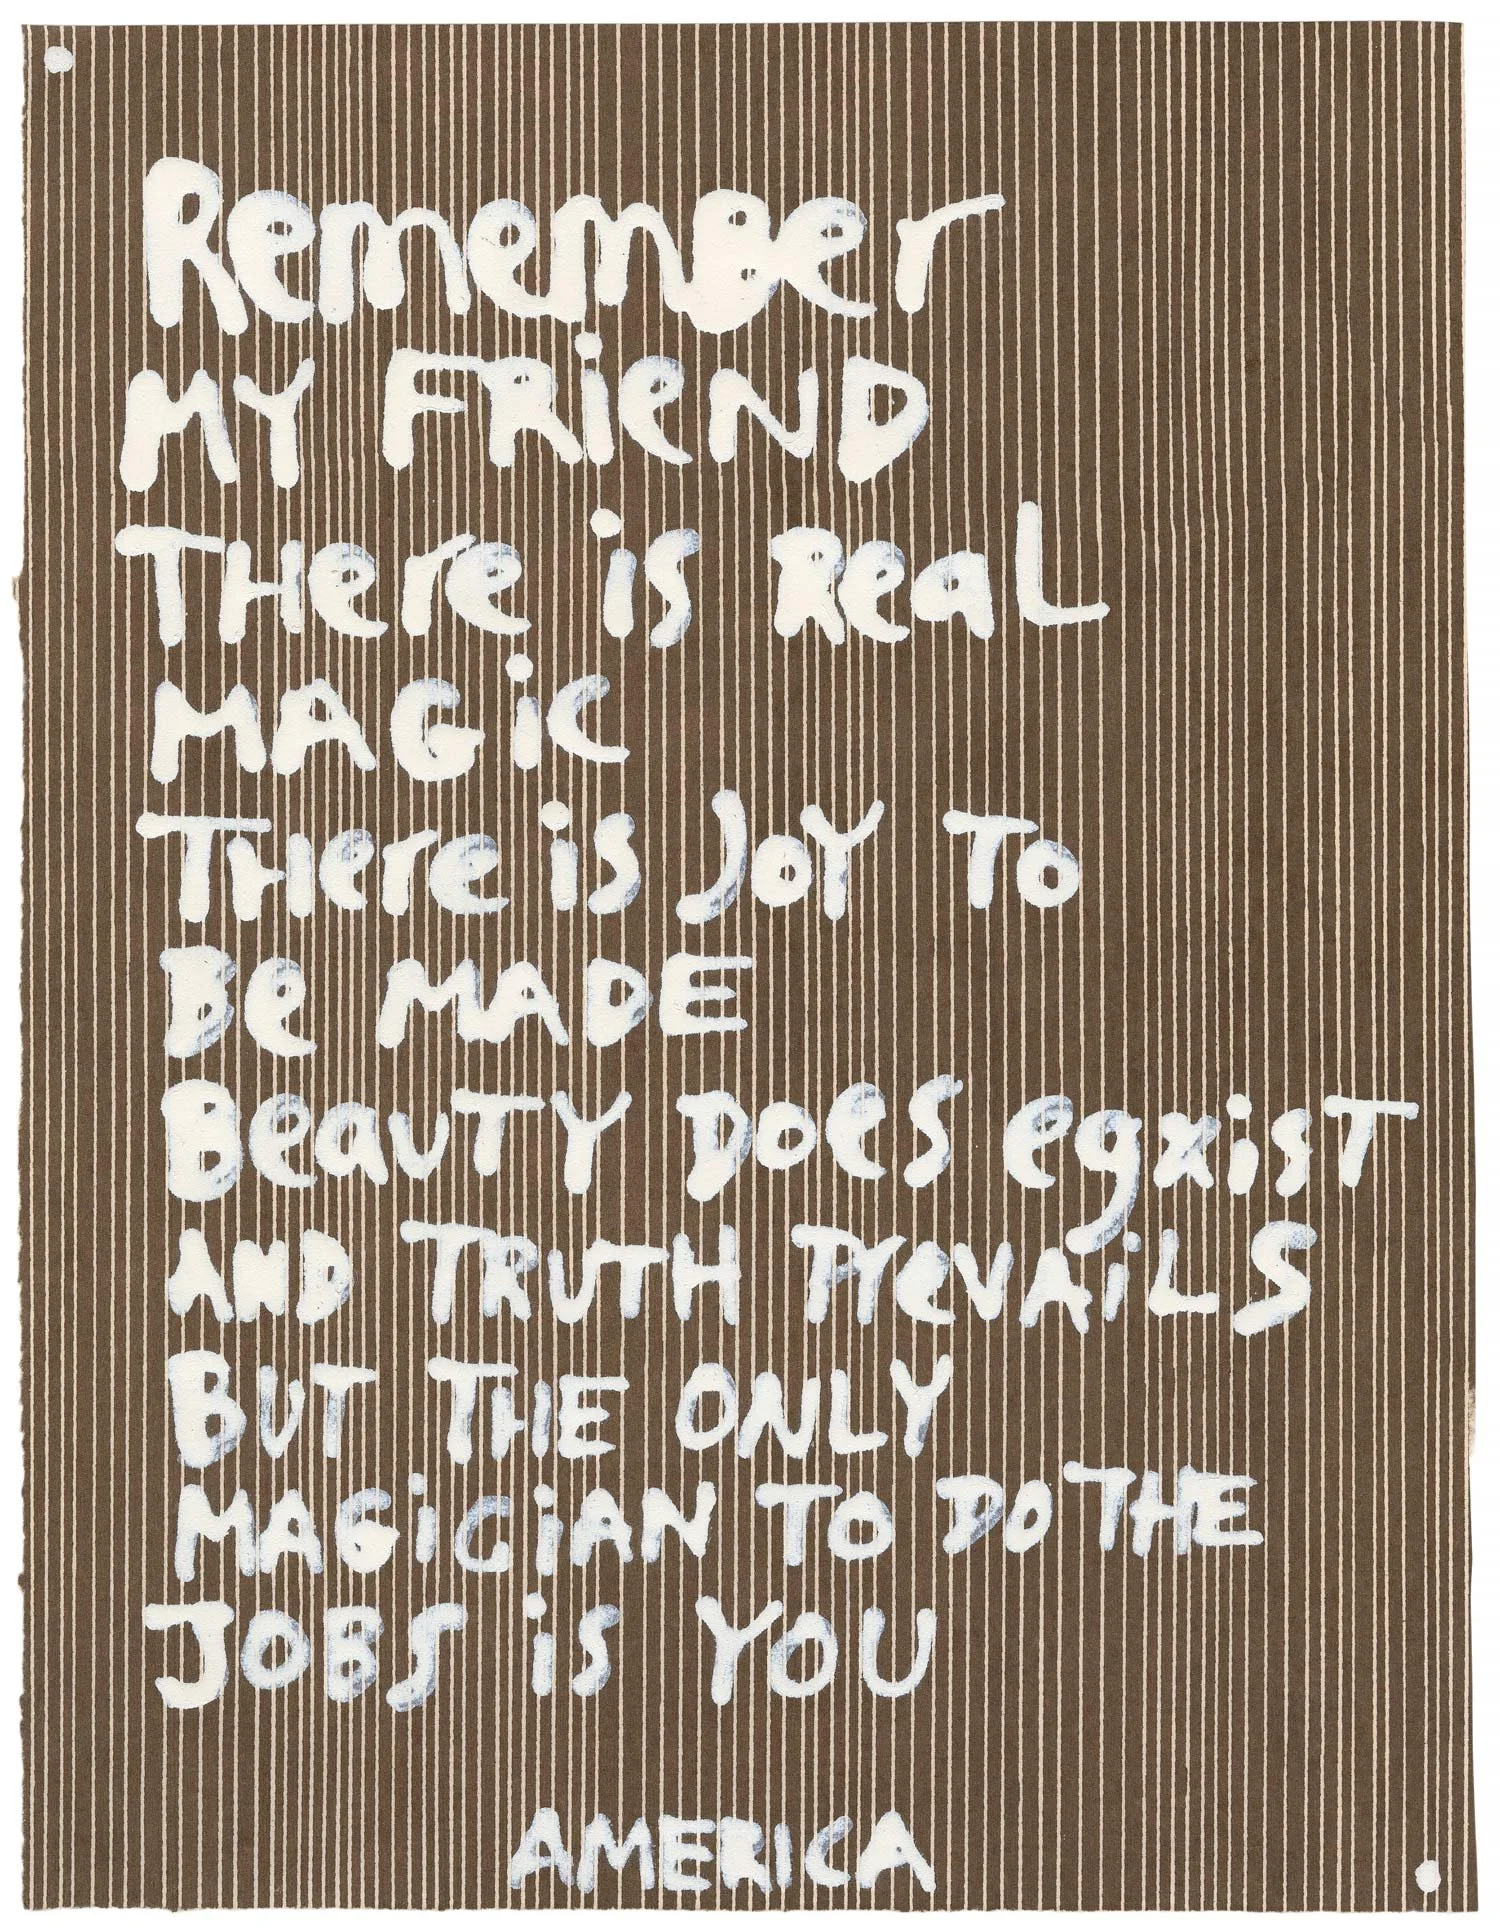 Remember
MY FRieND
THere is Real
MAGiC
THere is JoY To
Be MADE
BeauTY DoeS egxisT
AND TRUTH PrevAiLS
BUT THE ONLY
MAGiCiAN TO DO THE
JOBS iS YOU
AMERICA